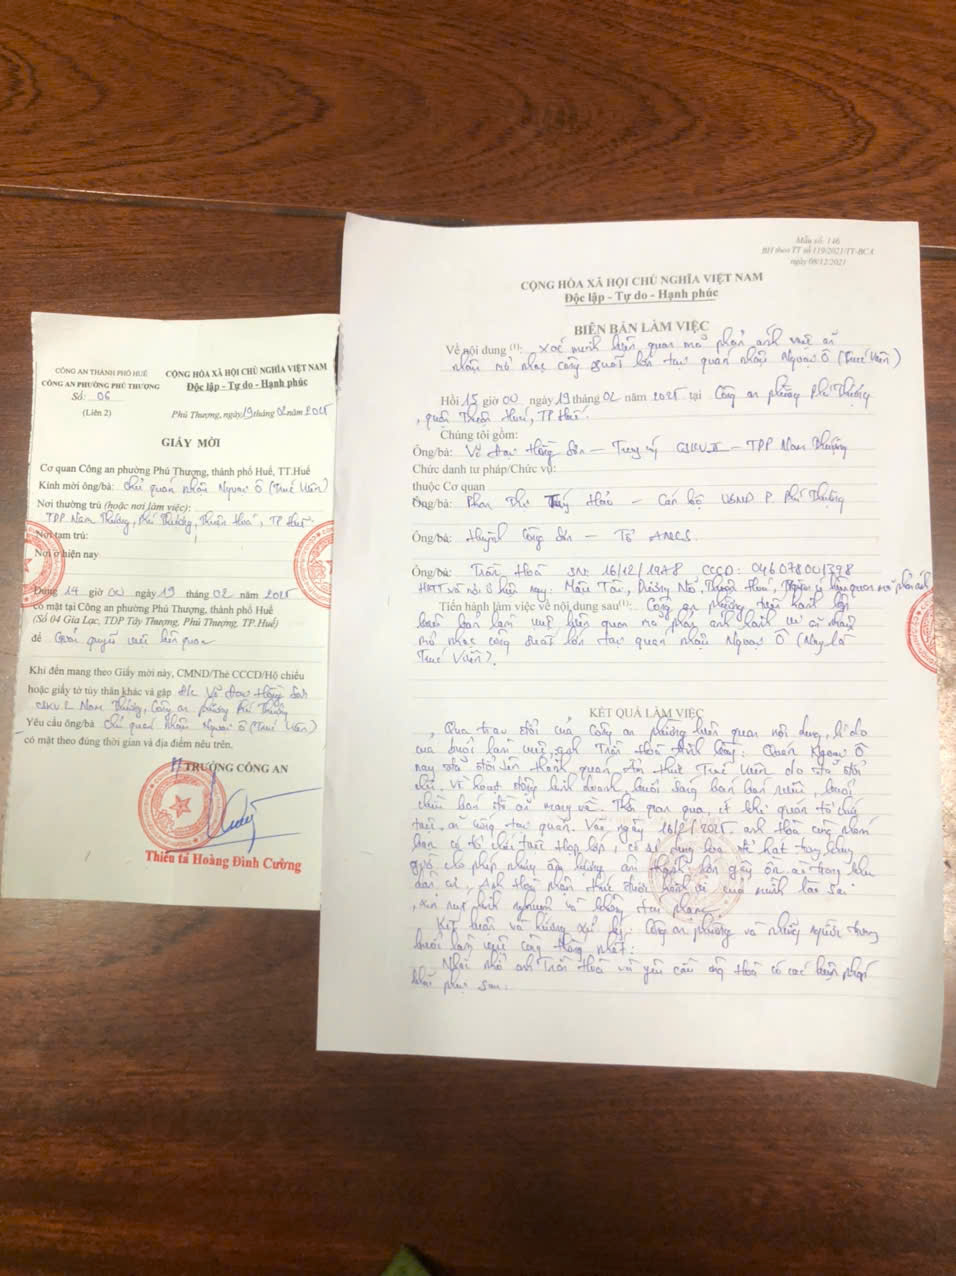 CÔNG AN THÀNH PHỐ HUẾ
CÔNG AN PHƯỜNG PHÚ THƯỢNG
Số: 06
(Liên 2)
CỘNG HÒA XÃ HỘI CHỦ NGHĨA VIỆT NAM
Độc lập - Tự do - Hạnh phúc
Phú Thượng, ngày 19 tháng 02 năm 2025
GIẤY MỜI
Cơ quan Công an phường Phú Thượng, thành phố Huế, TT.Huế
Kính mời ông/bà: Chủ quán nhậu Ngoại Ô (Trúc Viên)
Nơi thường trú (hoặc nơi làm việc):
TDP Nam Thượng, Phú Thượng, Thuận Hoá, TP Huế
Nơi tạm trú:
Nơi ở hiện nay
Đúng 14 giờ 00 ngày 19 tháng 02 năm 2025
có mặt tại Công an phường Phú Thượng, thành phố Huế
(Số 04 Gia Lạc, TDP Tây Thượng, Phú Thượng, TP.Huế)
để Giải quyết việc liên quan
Khi đến mang theo Giấy mời này, CMND/Thẻ CCCD/Hộ chiếu
hoặc giấy tờ tùy thân khác và gặp đ/c Võ Đại Hồng Sơn
CSKV 2 Nam Thượng, Công an phường Phú Thượng
Yêu cầu ông/bà Chủ quán Nhậu Ngoại Ô (Trúc Viên)
có mặt theo đúng thời gian và địa điểm nêu trên.
TRƯỞNG CÔNG AN
Thiếu tá Hoàng Đình Cường
Mẫu số: 146
BH theo TT số 119/2021/TT-BCA
ngày 08/12/2021
CỘNG HÒA XÃ HỘI CHỦ NGHĨA VIỆT NAM
Độc lập - Tự do - Hạnh phúc
BIÊN BẢN LÀM VIỆC
Về nội dung (1): Xác minh liên quan mà phản ánh việc ăn
nhậu mở nhạc công suất lớn tại quán nhậu Ngoại Ô (Trúc Viên)
Hồi 15 giờ 00 ngày 19 tháng 02 năm 2025 tại Công an phường Phú Thượng
, quận Thuận Hoá, TP Huế.
Chúng tôi gồm:
Ông/bà: Võ Đại Hồng Sơn – Trung uý CSKV II – TDP Nam Thượng
Chức danh tư pháp/Chức vụ:
thuộc Cơ quan
Ông/bà: Phan Thị Hảo – Cán bộ UBND P. Phú Thượng
Ông/bà: Huỳnh Công Sơn – Tổ ANCS
Ông/bà: Trần Hoà SN: 16/12/1978 CCCD: 04607800/398
HKTT và nơi ở hiện nay: Mậu Tài, Dương Nỗ, Thuận Hoá, liên quan mà phản ánh
Tiến hành làm việc về nội dung sau (1): Công an phường tiến hành lập
biên bản làm việc liên quan mà phản ánh hành vi ăn nhậu
mở nhạc công suất lớn tại quán nhậu Ngoại Ô (Nay là
Trúc Viên).
KẾT QUẢ LÀM VIỆC
Qua trao đổi của Công an phường liên quan nội dung, lí do
của buổi làm việc, anh Trần Hoà trình bày: Quán Ngoại Ô
nay đã đổi tên thành quán Ẩm thực Trúc Viên do đã đổi
chủ. Về hoạt động kinh doanh, buổi sáng bán bún, buổi
chiều bán đồ ăn mang về. Thời gian qua, có khi quán tổ chức
tiệc, ăn uống tại quán. Vào ngày 16/2/2025, anh Hoà cùng nhóm
bạn có tổ chức tiệc họp lớp, có sử dụng loa để hát trong khung
giờ cho phép nhưng âm lượng âm thanh lớn gây ồn ào trong khu
dân cư, Anh Hoà nhận thức được hành vi của mình là sai
, xin rút kinh nghiệm và không tái phạm.
Kết luận và hướng xử lý: Công an phường và những người trong
buổi làm việc cùng thống nhất:
Nhắc nhở anh Trần Hoà và yêu cầu ông Hoà có các biện pháp
khắc phục sau: